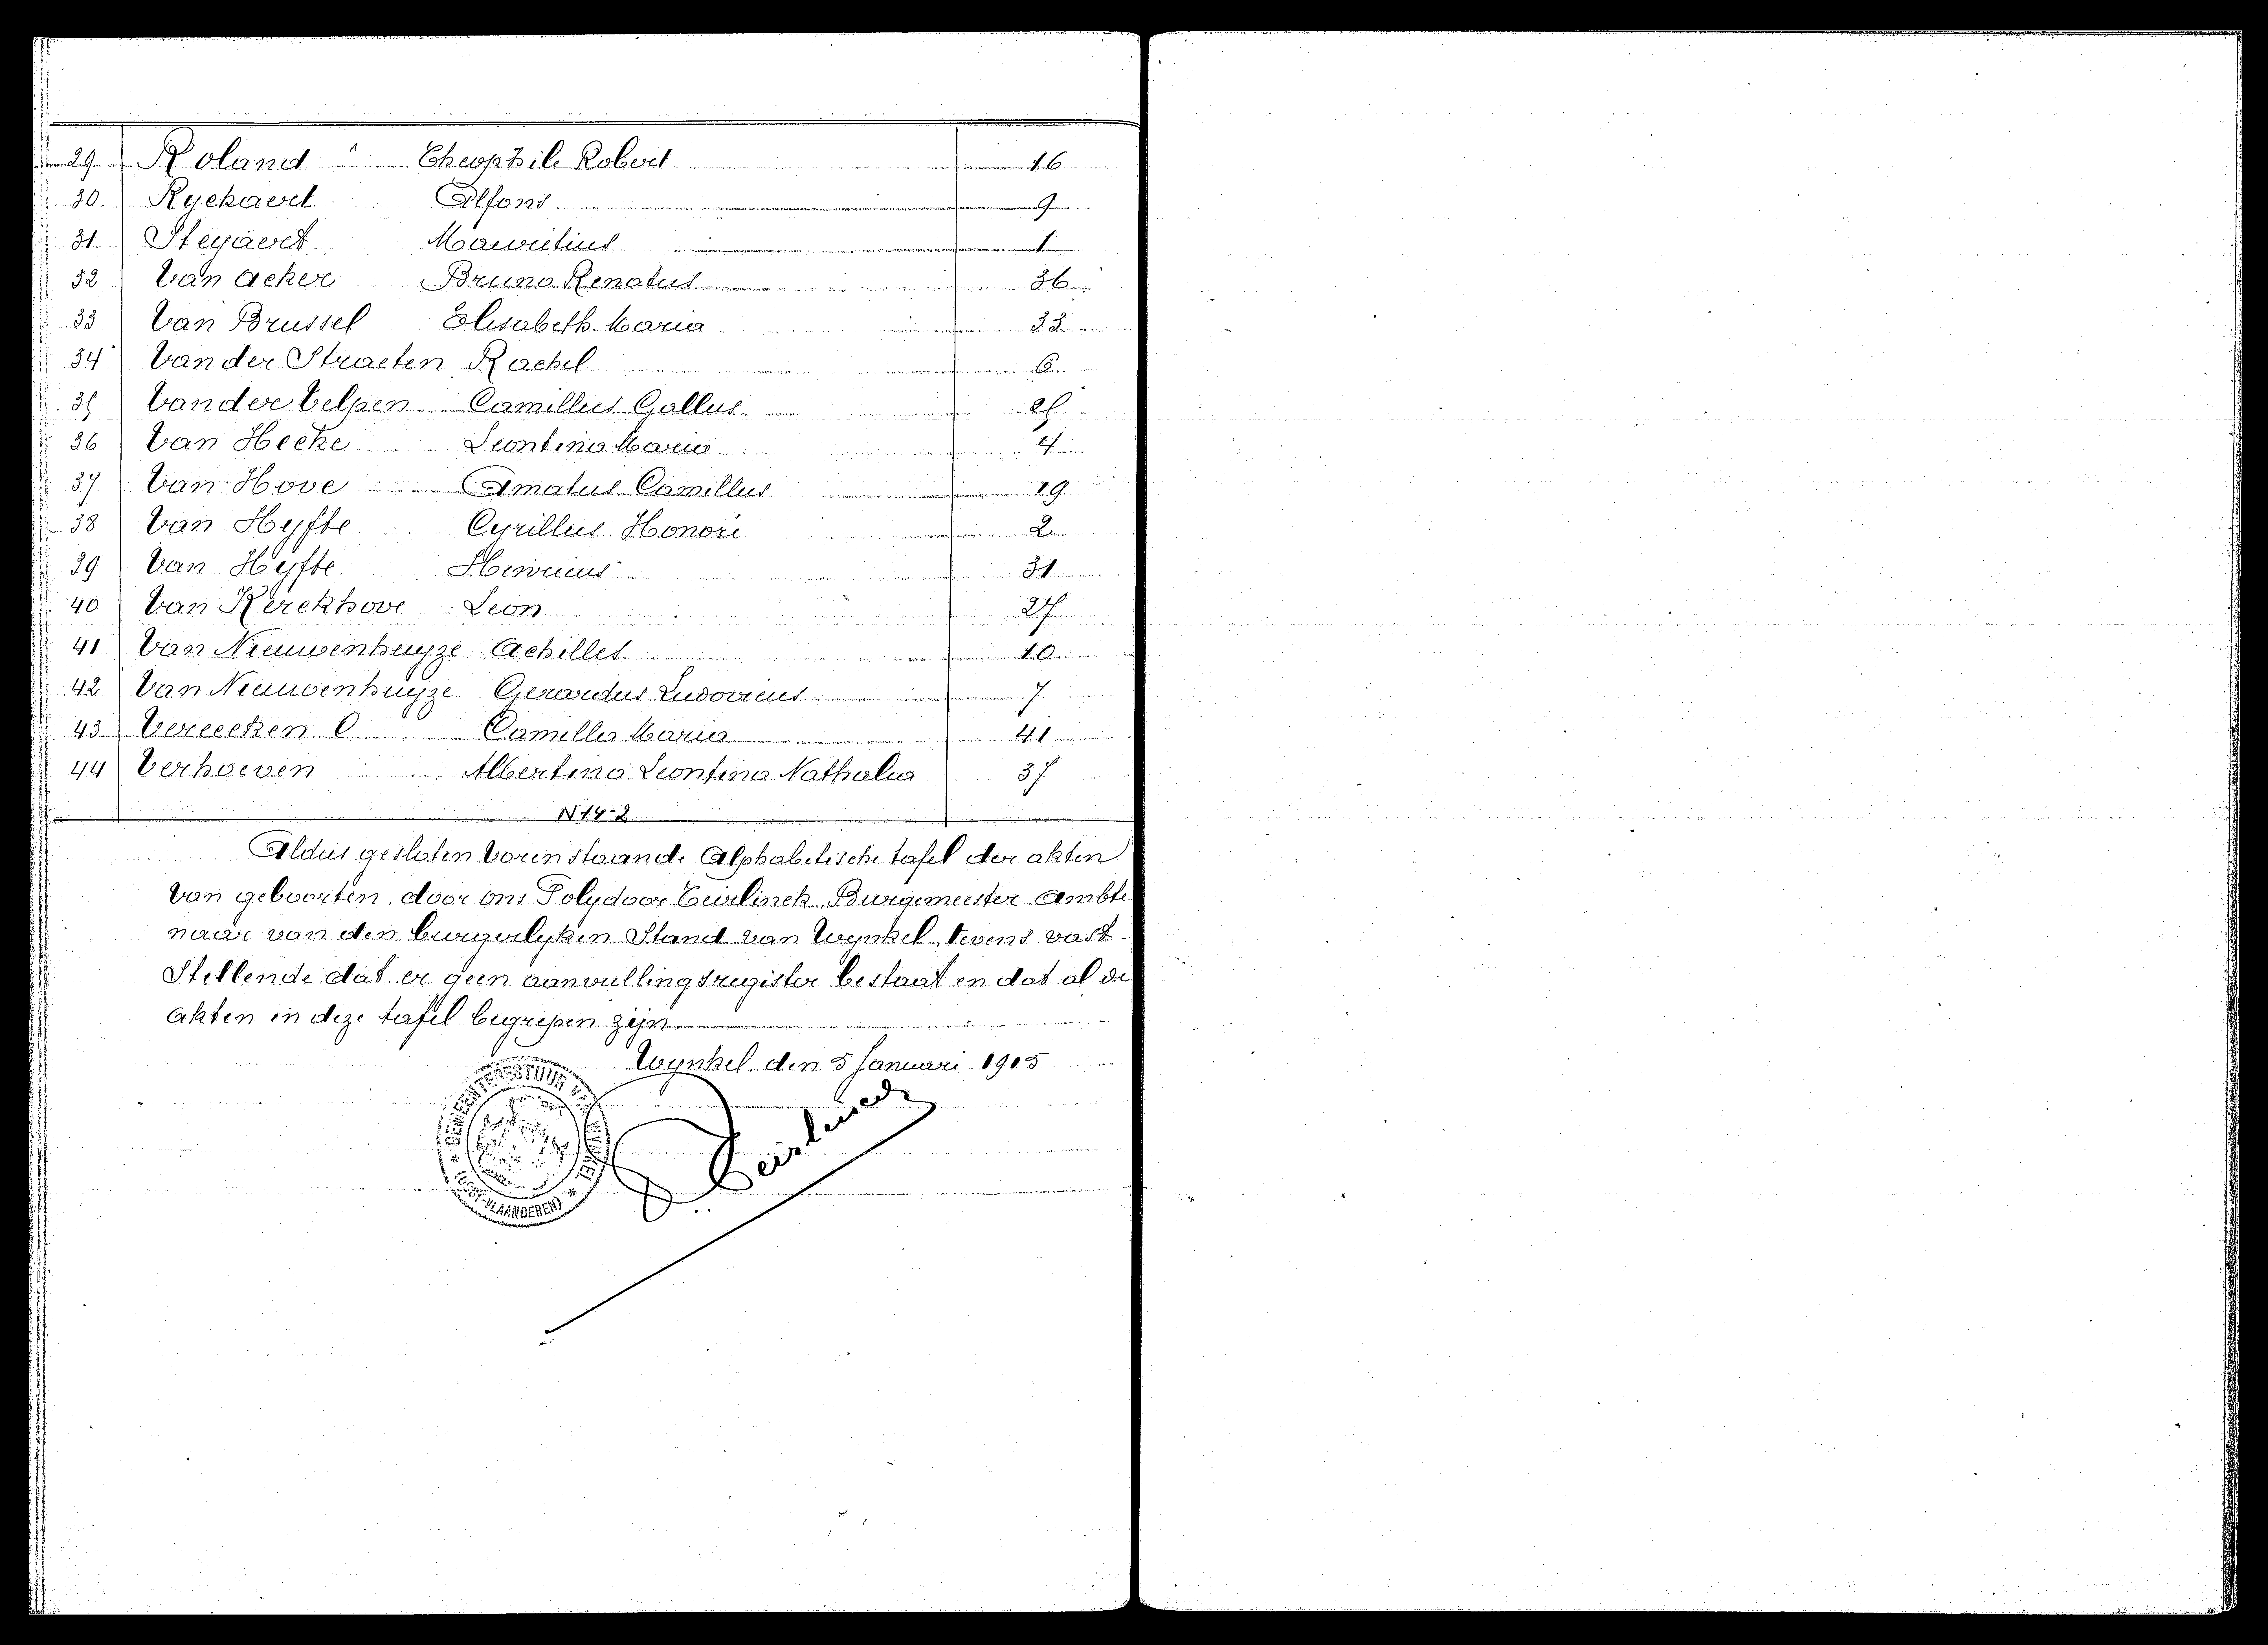 29 Roland Theophile Robert 16
30 Ryckaert Alfons 9
31 Steyaert Mauritius 1
32 Van Acker Bruno Renatus 36
33 Van Brussel Elisabeth Maria 33
34 Van der Straeten Rachel 6
35 Van der Velpen Camillus Gallus 25
36 Van Hecke Leontina Maria 4
37 Van Hove Amatus Camillus 19
38 Van Hyfte Cyrillus Honoré 2
39 Van Hyfte Henricus 31
40 Van Kerckhove Leon 27
41 Van Nieuwenhuyze Achilles 10
42 Van Nieuwenhuyze Gerardus Ludovicus 7
43 Vereecken Camilla Maria 41
44 Verhoeven Albertina Leontina Nathalia 37
N 14-2
Aldus gesloten vorenstaande Alphabetische tafel der akten
van geboorten, door ons Polydoor Burgemeester Ambte
naar van den burgerlyken Stand van Wynkel, tevens vast
Stellende dat er geen aanvullingsregister bestaat en dat al de
akten in deze tafel begrepen zijn
Wynkel den 5 Januari 1915
GEMEENTEBESTUUR
(OOST-VLAANDEREN)